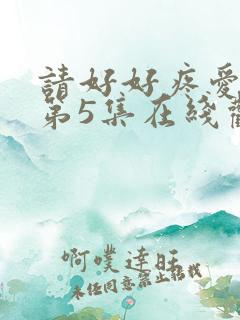 請好好疼愛
第5集在綫觀
啊噗達旺
未经同意禁止搭戏